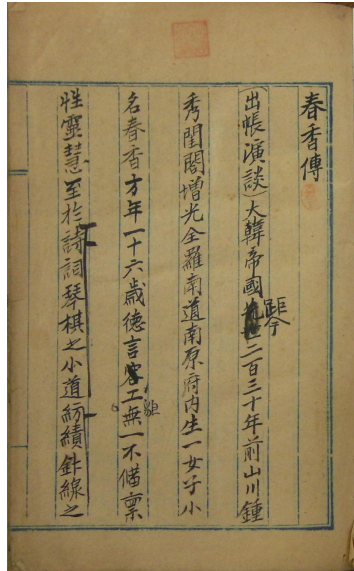 春香傳
(出帳演談)大韓帝國距今二百三十年前山川鍾
秀閨閣增光全羅南道南原府內生一女子小
名春香方年一十六歲德言容工無一不備稟
性靈慧至於詩詞琴棋之小道紡績針線之